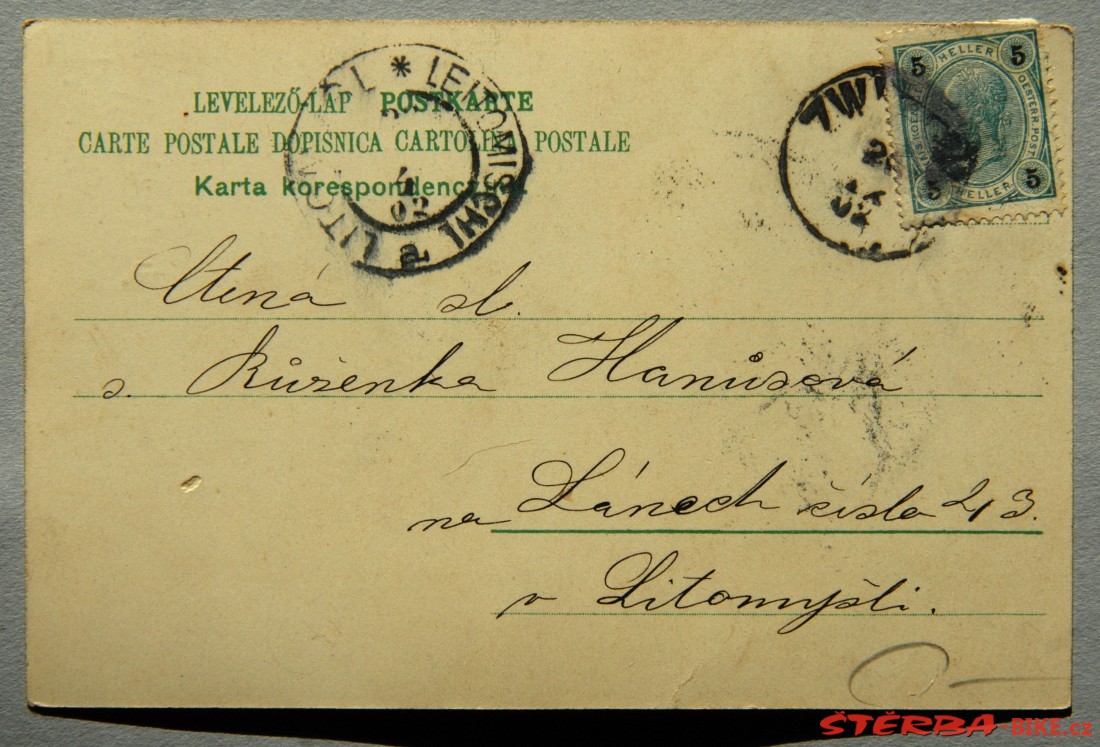 LEVELEZŐ-LAP POSTKARTE
CARTE POSTALE DOPISNICA CARTOLINA POSTALE
Karta korespondencyjna.
* LEITOMISCHL a
02
ZW
02
5 HELLER 5
OESTERR. POST
5 HELLER 5
Ctená sl.
s. Růženka Hanůsová
na Lánech číslo 213.
v Litomyšli.
ŠTĚRBA-BIKE.cz